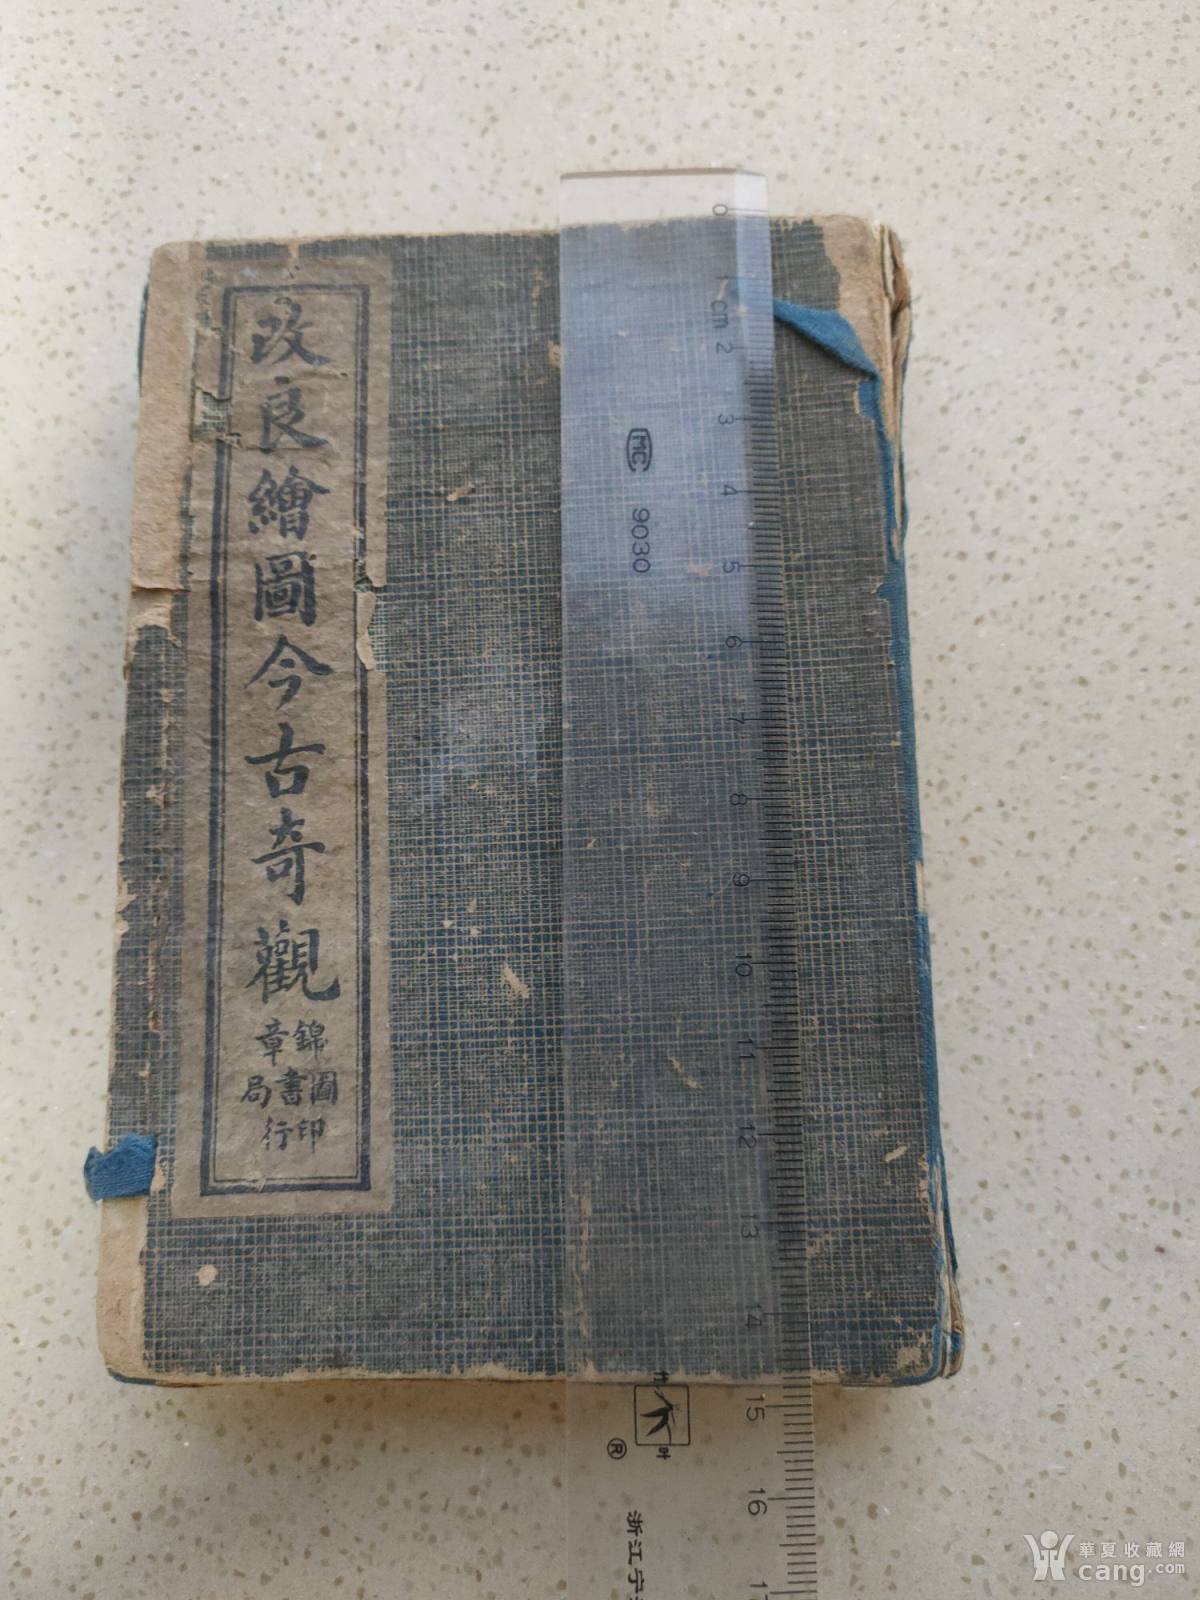 改良繪圖今古奇觀
錦章
圖書局
印行
0 1 cm 2 3 4 5 6 7 8 9 10 11 12 13 14 15 16
MC 9030
®
浙江宁
華夏收藏網
cang.com